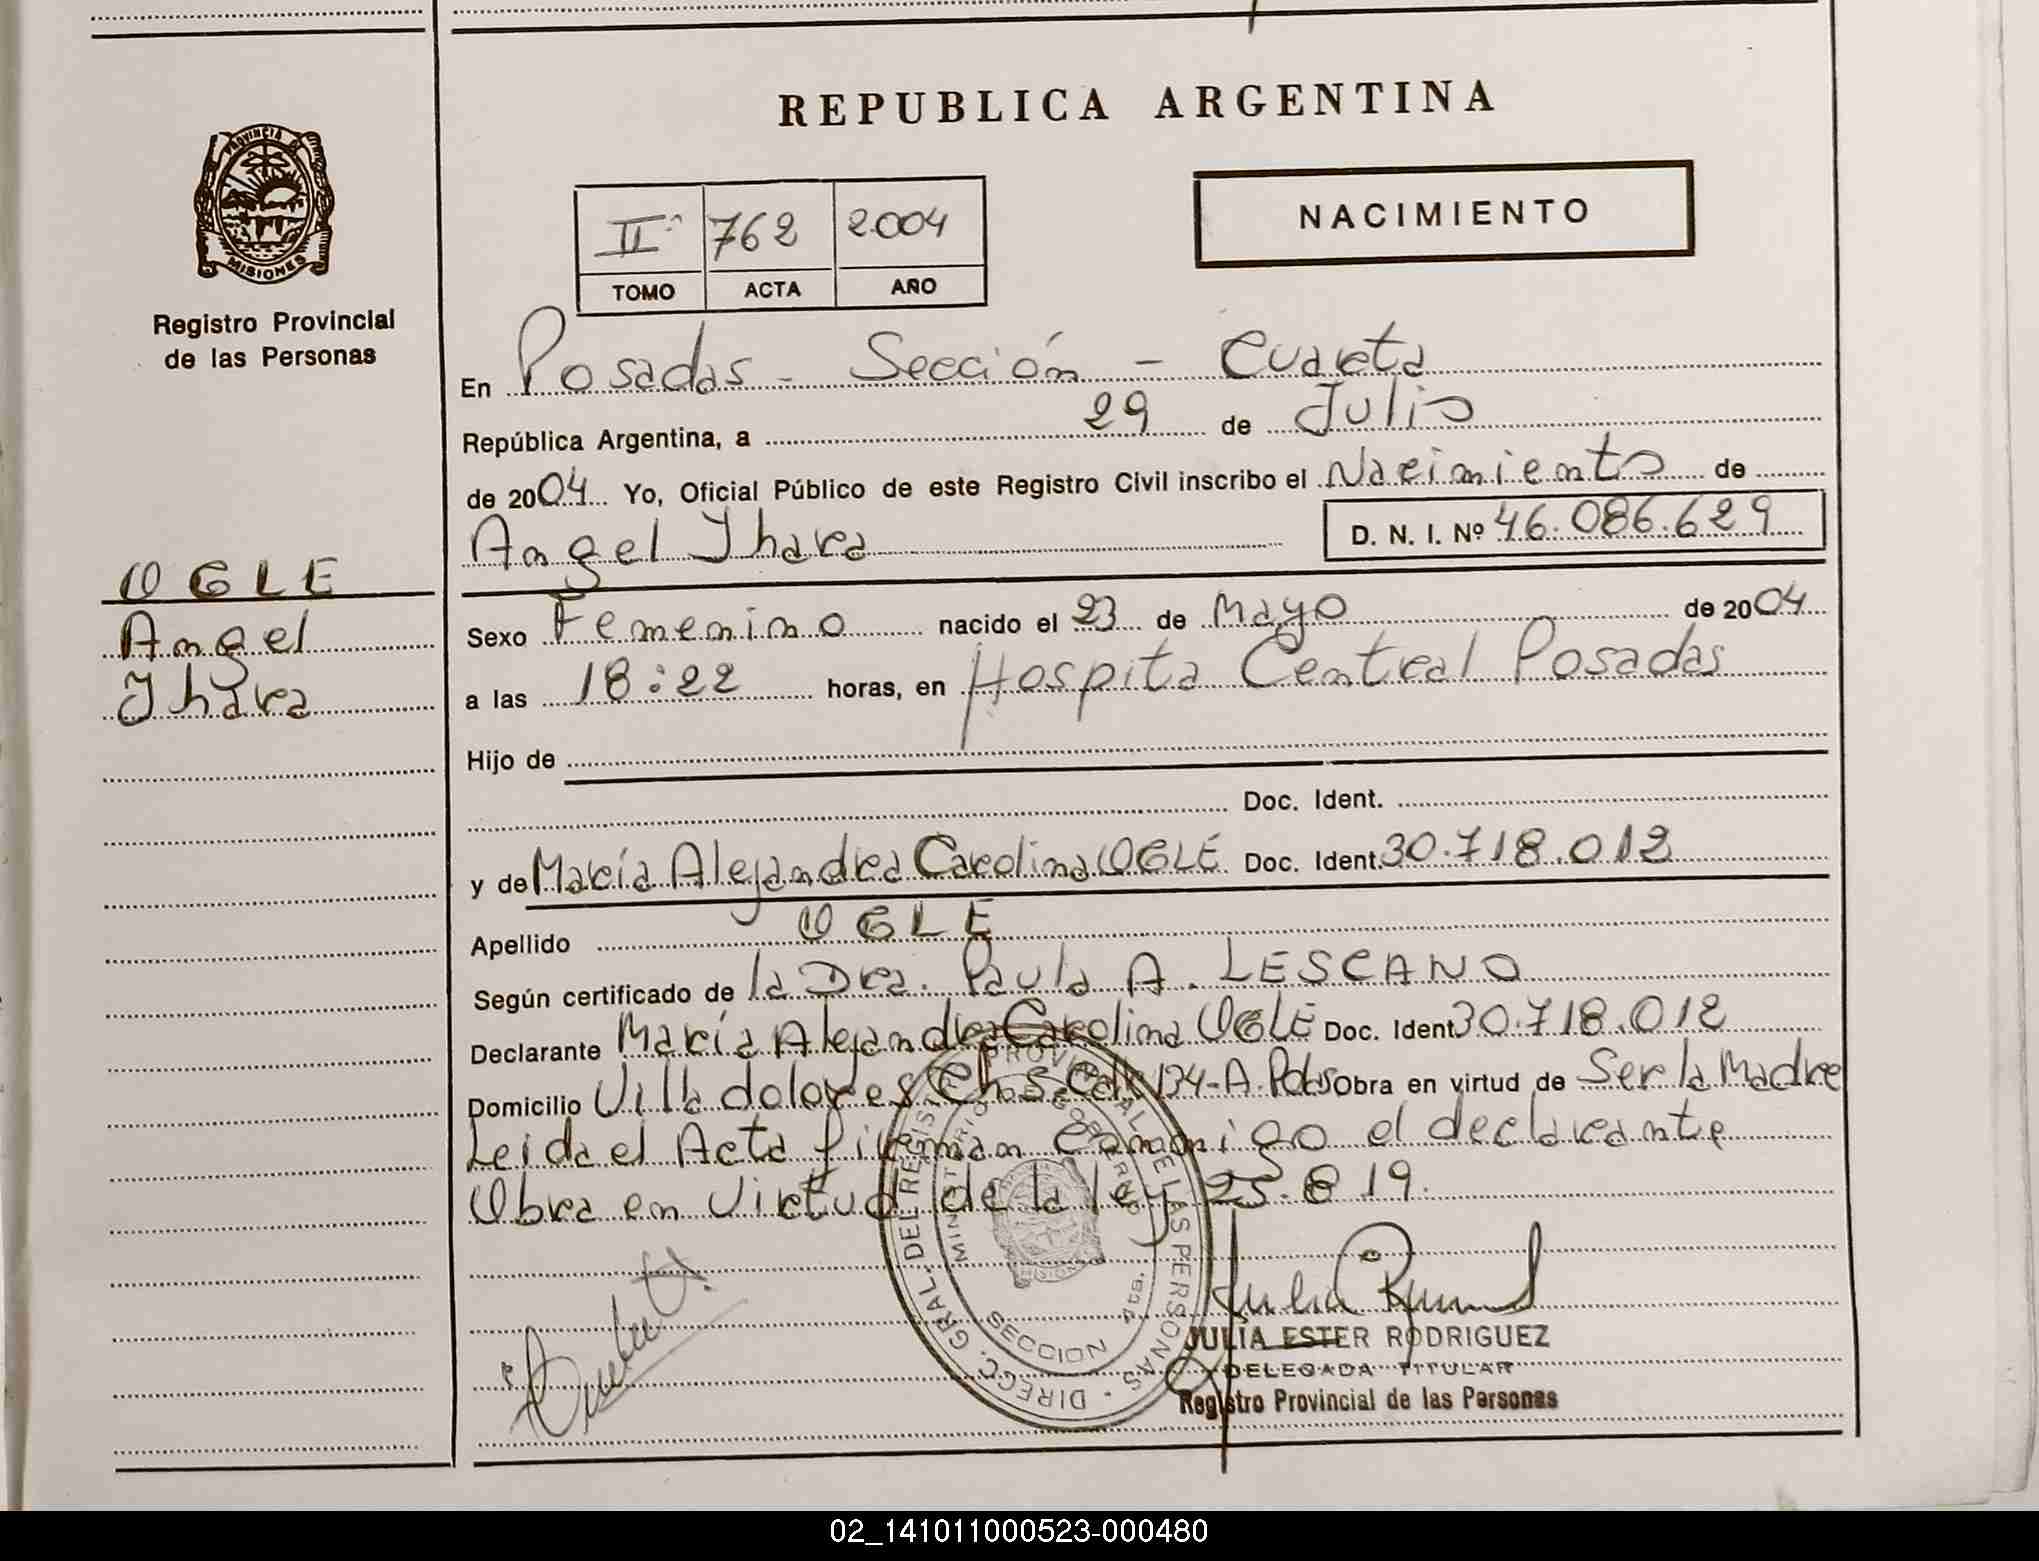 PROVINCIA DE
MISIONES
Registro Provincial
de las Personas
REPUBLICA ARGENTINA
NACIMIENTO
II 762 2.004
TOMO ACTA AÑO
En Posadas - Sección - Cuarta
República Argentina, a 29 de Julio
de 2004 Yo, Oficial Público de este Registro Civil inscribo el Nacimiento de
Angel Ihara D. N. I. Nº 46.086.629
OGLE
Angel
Ihara
Sexo Femenino nacido el 23 de Mayo de 2004
a las 18:22 horas, en Hospita Central Posadas
Hijo de
Doc. Ident.
y de María Alejandra Carolina OGLE Doc. Ident. 30.718.012
Apellido OGLE
Según certificado de la Dra. Paula A. LESCANO
Declarante María Alejandra Carolina OGLE Doc. Ident 30.718.012
Domicilio Villa dolores 134-A. Pdas Obra en virtud de Ser la Madre
Leida el Acta firman conmigo el declarante
Obra en Virtud de la ley 25.819.
DIRECC. GRAL. DEL REGISTRO PROVINCIAL DE LAS PERSONAS
MINISTERIO DE GOBIERNO
SECCION 4ta.
JULIA ESTER RODRIGUEZ
DELEGADA TITULAR
Registro Provincial de las Personas
02_141011000523-000480